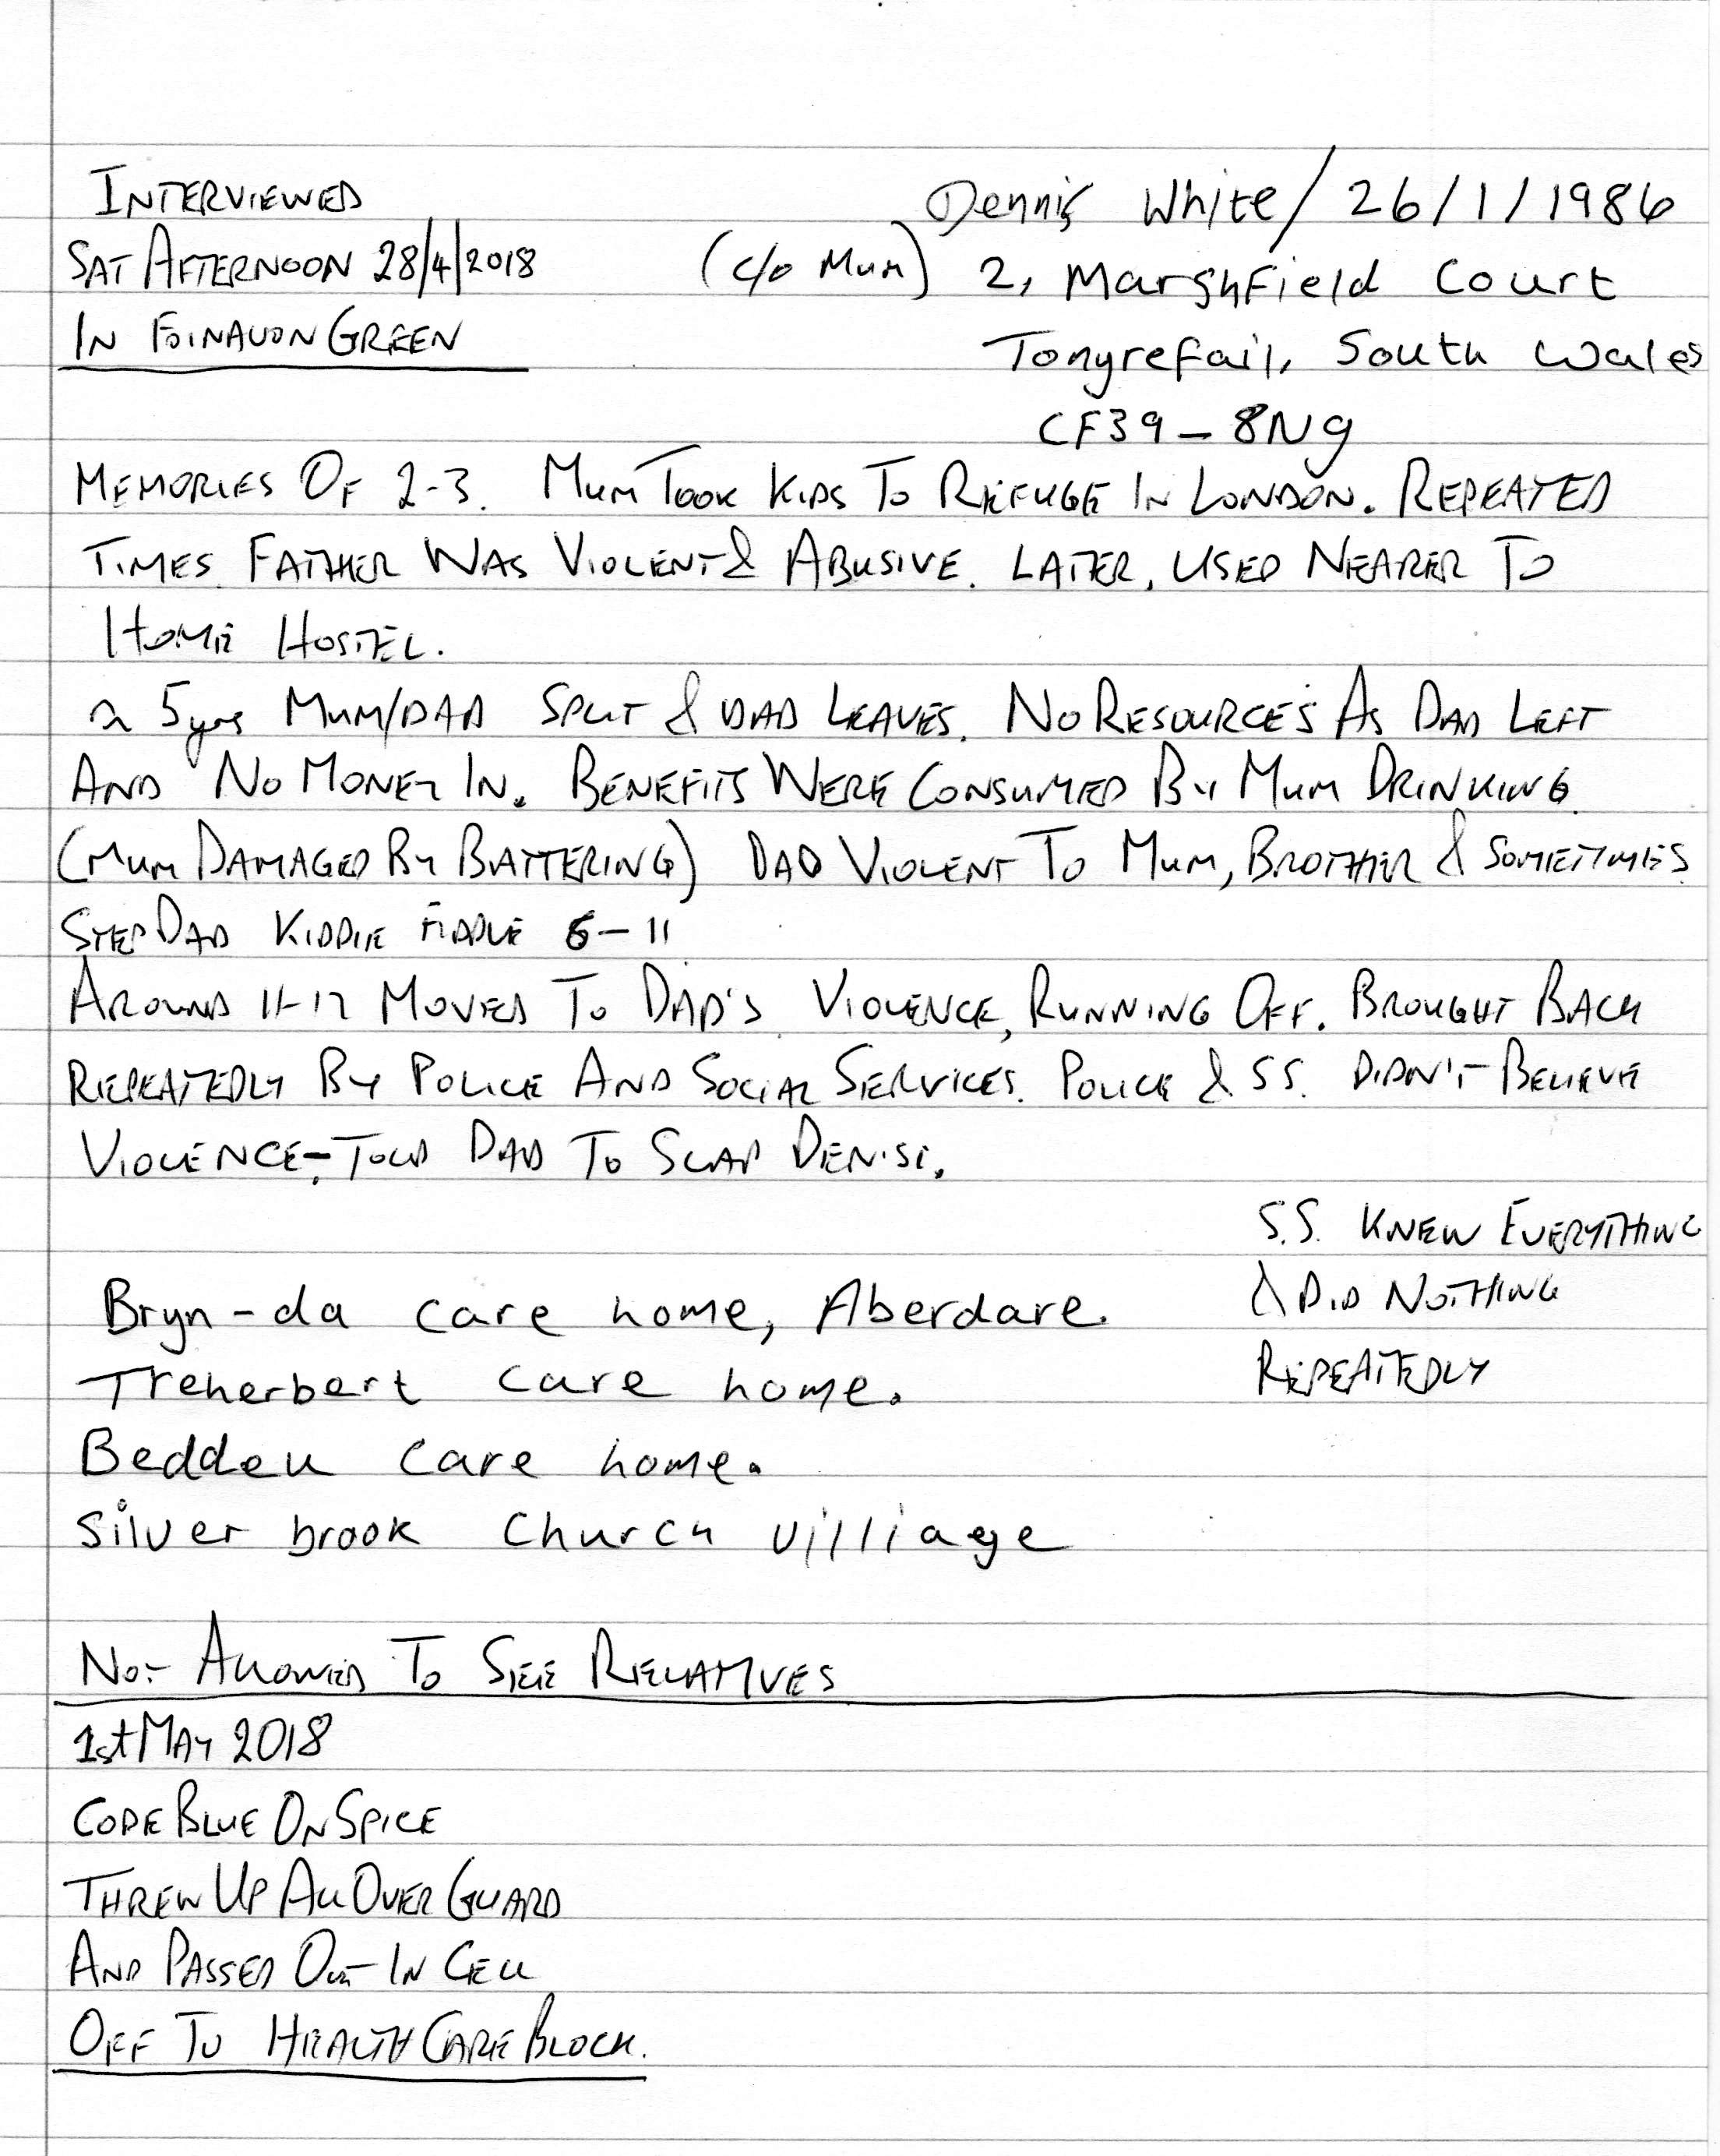 INTERVIEWED
SAT AFTERNOON 28/4/2018
IN FOINAVON GREEN
Dennis White/26/1/1986
(c/o Mum) 2, Marshfield Court
Tonyrefail, South Wales
CF39-8NG
MEMORIES OF 2-3. MUM TOOK KIDS TO REFUGE IN LONDON. REPEATED
TIMES. FATHER WAS VIOLENT & ABUSIVE. LATER, USED NEARER TO
HOME HOSTEL.
≈ 5yrs MUM/DAD SPLIT & DAD LEAVES. NO RESOURCES AS DAD LEFT
AND NO MONEY IN. BENEFITS WERE CONSUMED BY MUM DRINKING.
(MUM DAMAGED BY BATTERING) DAD VIOLENT TO MUM, BROTHER & SOMETIMES
STEP DAD KIDDIE FIDDLE 6-11
AROUND 11-12 MOVED TO DAD'S. VIOLENCE, RUNNING OFF. BROUGHT BACK
REPEATEDLY BY POLICE AND SOCIAL SERVICES. POLICE & SS. DIDN'T BELIEVE
VIOLENCE - TOLD DAD TO SLAP
S.S. KNEW EVERYTHING
& DID NOTHING
REPEATEDLY
Bryn-da care home, Aberdare.
Treherbert care home.
Beddeu care home.
Silver brook Church villiage
NOT ALLOWED TO SEE RELATIVES
1st MAY 2018
CODE BLUE ON SPICE
THREW UP ALL OVER GUARD
AND PASSED OUT IN CELL
OFF TO HEALTHCARE BLOCK.